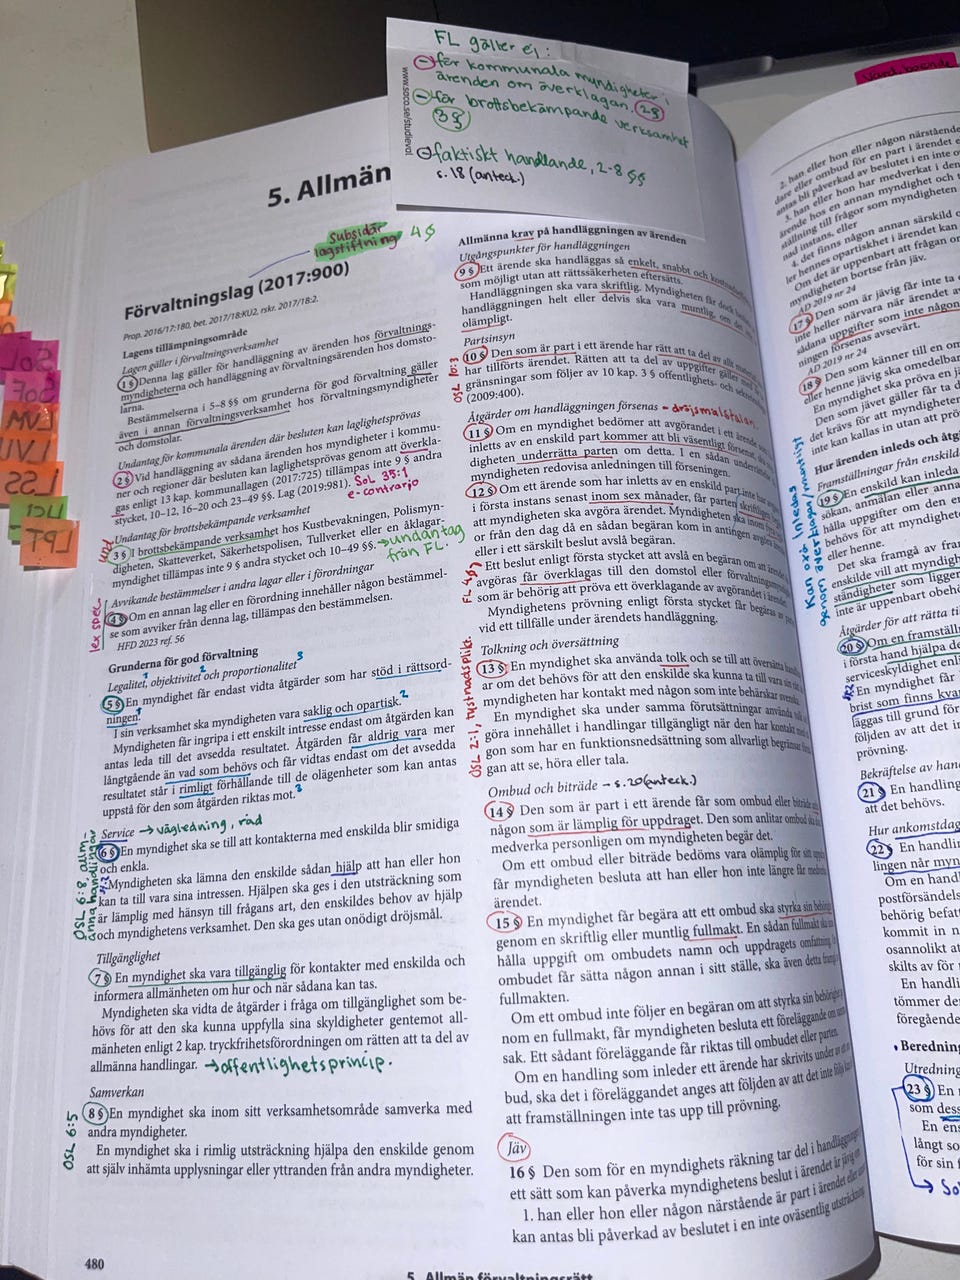 FL gäller ej:
- för kommunala myndigheter i
ärenden om överklagan. 2 §
- för brottsbekämpande verksamhet
3 §
- faktiskt handlande, 2-8 §§
s. 18 (anteck.)
www.soco.se/studieval
Vård, boende
SoL
SoF
LVM
LVU
LSS
LPT
5. Allmän
Subsidär
lagstiftning 4 §
Förvaltningslag (2017:900)
Prop. 2016/17:180, bet. 2017/18:KU2, rskr. 2017/18:2.
Lagens tillämpningsområde
Lagen gäller i förvaltningsverksamhet
1 § Denna lag gäller för handläggning av ärenden hos förvaltnings-
myndigheterna och handläggning av förvaltningsärenden hos domsto-
larna.
Bestämmelserna i 5–8 §§ om grunderna för god förvaltning gäller
även i annan förvaltningsverksamhet hos förvaltningsmyndigheter
och domstolar.
Undantag för kommunala ärenden där besluten kan laglighetsprövas
2 § Vid handläggning av sådana ärenden hos myndigheter i kommu-
ner och regioner där besluten kan laglighetsprövas genom att överkla-
gas enligt 13 kap. kommunallagen (2017:725) tillämpas inte 9 § andra
stycket, 10–12, 16–20 och 23–49 §§. Lag (2019:981).
SoL 35:1
e-contrario
Undantag för brottsbekämpande verksamhet
3 § I brottsbekämpande verksamhet hos Kustbevakningen, Polismyn-
digheten, Skatteverket, Säkerhetspolisen, Tullverket eller en åklagar-
myndighet tillämpas inte 9 § andra stycket och 10–49 §§.
→ undantag
från FL.
lex spec.
Avvikande bestämmelser i andra lagar eller i förordningar
4 § Om en annan lag eller en förordning innehåller någon bestämmel-
se som avviker från denna lag, tillämpas den bestämmelsen.
HFD 2023 ref. 56
Grunderna för god förvaltning
Legalitet,1 objektivitet2 och proportionalitet3
5 § En myndighet får endast vidta åtgärder som har stöd i rättsord-
ningen.1
I sin verksamhet ska myndigheten vara saklig och opartisk.2
Myndigheten får ingripa i ett enskilt intresse endast om åtgärden kan
antas leda till det avsedda resultatet. Åtgärden får aldrig vara mer
långtgående än vad som behövs och får vidtas endast om det avsedda
resultatet står i rimligt förhållande till de olägenheter som kan antas
uppstå för den som åtgärden riktas mot.3
Service → vägledning, råd
OSL 6:8, allm-
änna handlingar
6 § En myndighet ska se till att kontakterna med enskilda blir smidiga
och enkla.
Myndigheten ska lämna den enskilde sådan hjälp att han eller hon
kan ta till vara sina intressen. Hjälpen ska ges i den utsträckning som
är lämplig med hänsyn till frågans art, den enskildes behov av hjälp
och myndighetens verksamhet. Den ska ges utan onödigt dröjsmål.
Tillgänglighet
7 § En myndighet ska vara tillgänglig för kontakter med enskilda och
informera allmänheten om hur och när sådana kan tas.
Myndigheten ska vidta de åtgärder i fråga om tillgänglighet som be-
hövs för att den ska kunna uppfylla sina skyldigheter gentemot all-
mänheten enligt 2 kap. tryckfrihetsförordningen om rätten att ta del av
allmänna handlingar. → offentlighetsprincip.
Samverkan
OSL 6:5
8 § En myndighet ska inom sitt verksamhetsområde samverka med
andra myndigheter.
En myndighet ska i rimlig utsträckning hjälpa den enskilde genom
att själv inhämta upplysningar eller yttranden från andra myndigheter.
480
Allmänna krav på handläggningen av ärenden
Utgångspunkter för handläggningen
9 § Ett ärende ska handläggas så enkelt, snabbt och kostnadseffektivt
som möjligt utan att rättssäkerheten eftersätts.
Handläggningen ska vara skriftlig. Myndigheten får dock
handläggningen helt eller delvis ska vara muntlig, om det
olämpligt.
Partsinsyn
OSL 10:3
10 § Den som är part i ett ärende har rätt att ta del av allt material
har tillförts ärendet. Rätten att ta del av uppgifter gäller med de
gränsningar som följer av 10 kap. 3 § offentlighets- och sekretesslagen
(2009:400).
Åtgärder om handläggningen försenas - dröjsmålstalan.
11 § Om en myndighet bedömer att avgörandet i ett ärende
inletts av en enskild part kommer att bli väsentligt försenat, ska
digheten underrätta parten om detta. I en sådan underrättelse
myndigheten redovisa anledningen till förseningen.
12 § Om ett ärende som har inletts av en enskild part inte har
i första instans senast inom sex månader, får parten skriftligen
att myndigheten ska avgöra ärendet. Myndigheten ska inom
or från den dag då en sådan begäran kom in antingen avgöra
eller i ett särskilt beslut avslå begäran.
Ett beslut enligt första stycket att avslå en begäran om att
avgöras får överklagas till den domstol eller förvaltningsmyndighet
som är behörig att pröva ett överklagande av avgörandet i ärendet.
Myndighetens prövning enligt första stycket får begäras av
vid ett tillfälle under ärendets handläggning.
Tolkning och översättning
OSL 2:1, tystnadsplikt.
13 § En myndighet ska använda tolk och se till att översätta
ar om det behövs för att den enskilde ska kunna ta till vara sin
myndigheten har kontakt med någon som inte behärskar svenska.
En myndighet ska under samma förutsättningar använda tolk
göra innehållet i handlingar tillgängligt när den har kontakt med
gon som har en funktionsnedsättning som allvarligt begränsar
gan att se, höra eller tala.
Ombud och biträde → s. 20 (anteck.)
14 § Den som är part i ett ärende får som ombud eller biträde
någon som är lämplig för uppdraget. Den som anlitar ombud ska
medverka personligen om myndigheten begär det.
Om ett ombud eller biträde bedöms vara olämplig för sitt
får myndigheten besluta att han eller hon inte längre får medverka
ärendet.
15 § En myndighet får begära att ett ombud ska styrka sin behörighet
genom en skriftlig eller muntlig fullmakt. En sådan fullmakt ska
hålla uppgift om ombudets namn och uppdragets omfattning.
ombudet får sätta någon annan i sitt ställe, ska även detta framgå
fullmakten.
Om ett ombud inte följer en begäran om att styrka sin behörighet
nom en fullmakt, får myndigheten besluta ett föreläggande om
sak. Ett sådant föreläggande får riktas till ombudet eller parten.
Om en handling som inleder ett ärende har skrivits under av ett
bud, ska det i föreläggandet anges att följden av att det inte följs
att framställningen inte tas upp till prövning.
Jäv
16 § Den som för en myndighets räkning tar del i handläggningen
ett sätt som kan påverka myndighetens beslut i ärendet är jävig
1. han eller hon eller någon närstående är part i ärendet eller
kan antas bli påverkad av beslutet i en inte oväsentlig utsträckning
5. Allmän förvaltningsrätt
2. han eller hon eller någon närstående
dare eller ombud för en part i ärendet
antas bli påverkad av beslutet i en inte
3. han eller hon har medverkat i den
ärende hos en annan myndighet och
ställning till frågor som myndigheten
nad instans, eller
4. det finns någon annan särskild
ler hennes opartiskhet i ärendet kan
Om det är uppenbart att frågan
myndigheten bortse från jäv.
AD 2019 nr 24
17 § Den som är jävig får inte ta
inte heller närvara när ärendet
sådana uppgifter som inte någon
ningen försenas avsevärt.
AD 2019 nr 24
18 § Den som känner till en om
henne jävig ska omedelbart
En myndighet ska pröva en jä
Den som jävet gäller får ta
det krävs för att myndigheten
inte kan kallas in utan att prö
Hur ärenden inleds och åtg
Framställningar från enskild
Kan oxå inledas
genom överklagan/muntligt
19 § En enskild kan inleda
sökan, anmälan eller anna
hålla uppgifter om den en
behövs för att myndighete
eller henne.
Det ska framgå av fram
enskilde vill att myndighet
ständigheter som ligger
inte är uppenbart obehö
Åtgärder för att rätta til
20 § Om en framställn
i första hand hjälpa de
serviceskyldighet enli
En myndighet får
brist som finns kvar
läggas till grund för
följden av att det in
prövning.
Bekräftelse av han
21 § En handling
att det behövs.
Hur ankomstdag
22 § En handlin
lingen når myn
Om en handl
postförsändels
behörig befatt
kommit in n
osannolikt at
skilts av för
En handli
tömmer de
föregående
Beredning
Utredning
23 § En
som dess
En ens
långt so
för sin f